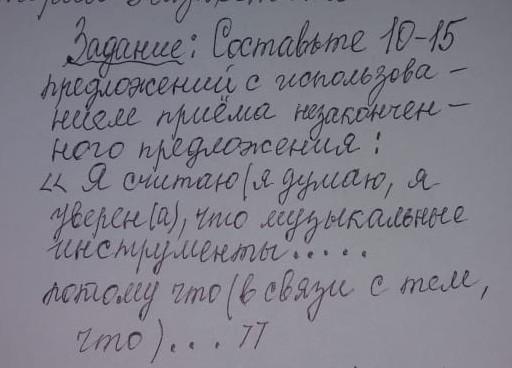 Задание: Составьте 10-15
предложений с использова-
нием приёма незакончен-
ного предложения:
« Я считаю (я думаю, я
уверен(а), что музыкальные
инструменты.....
потому что (в связи с тем,
что)... "